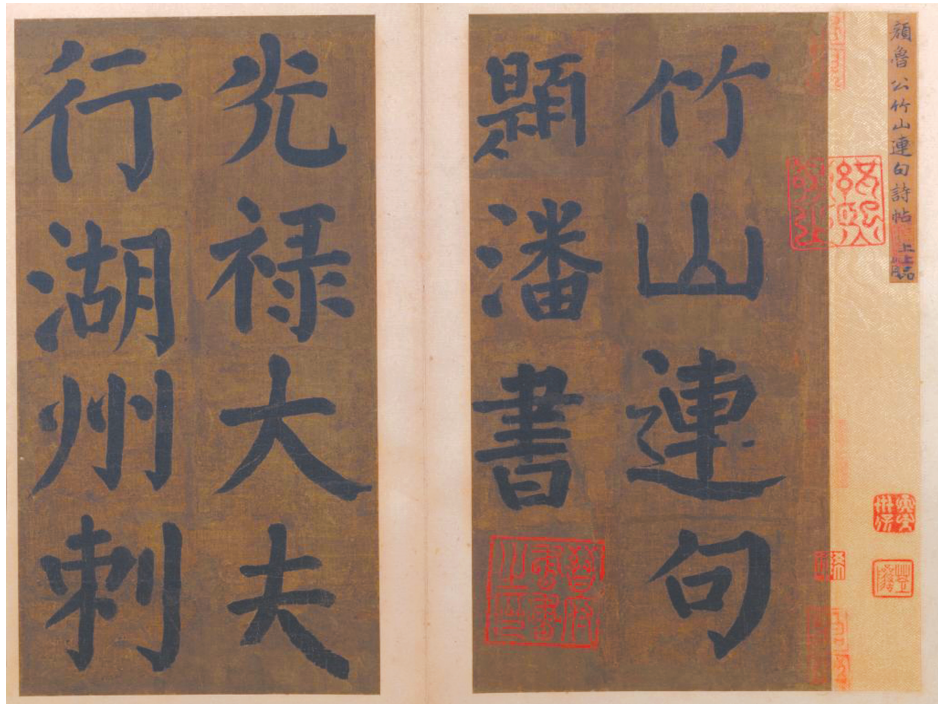 顏魯公竹山連句詩帖
竹山連句
題潘書
光禄大夫
行湖州刺